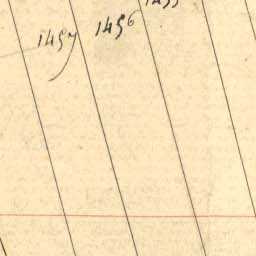 1457 1456